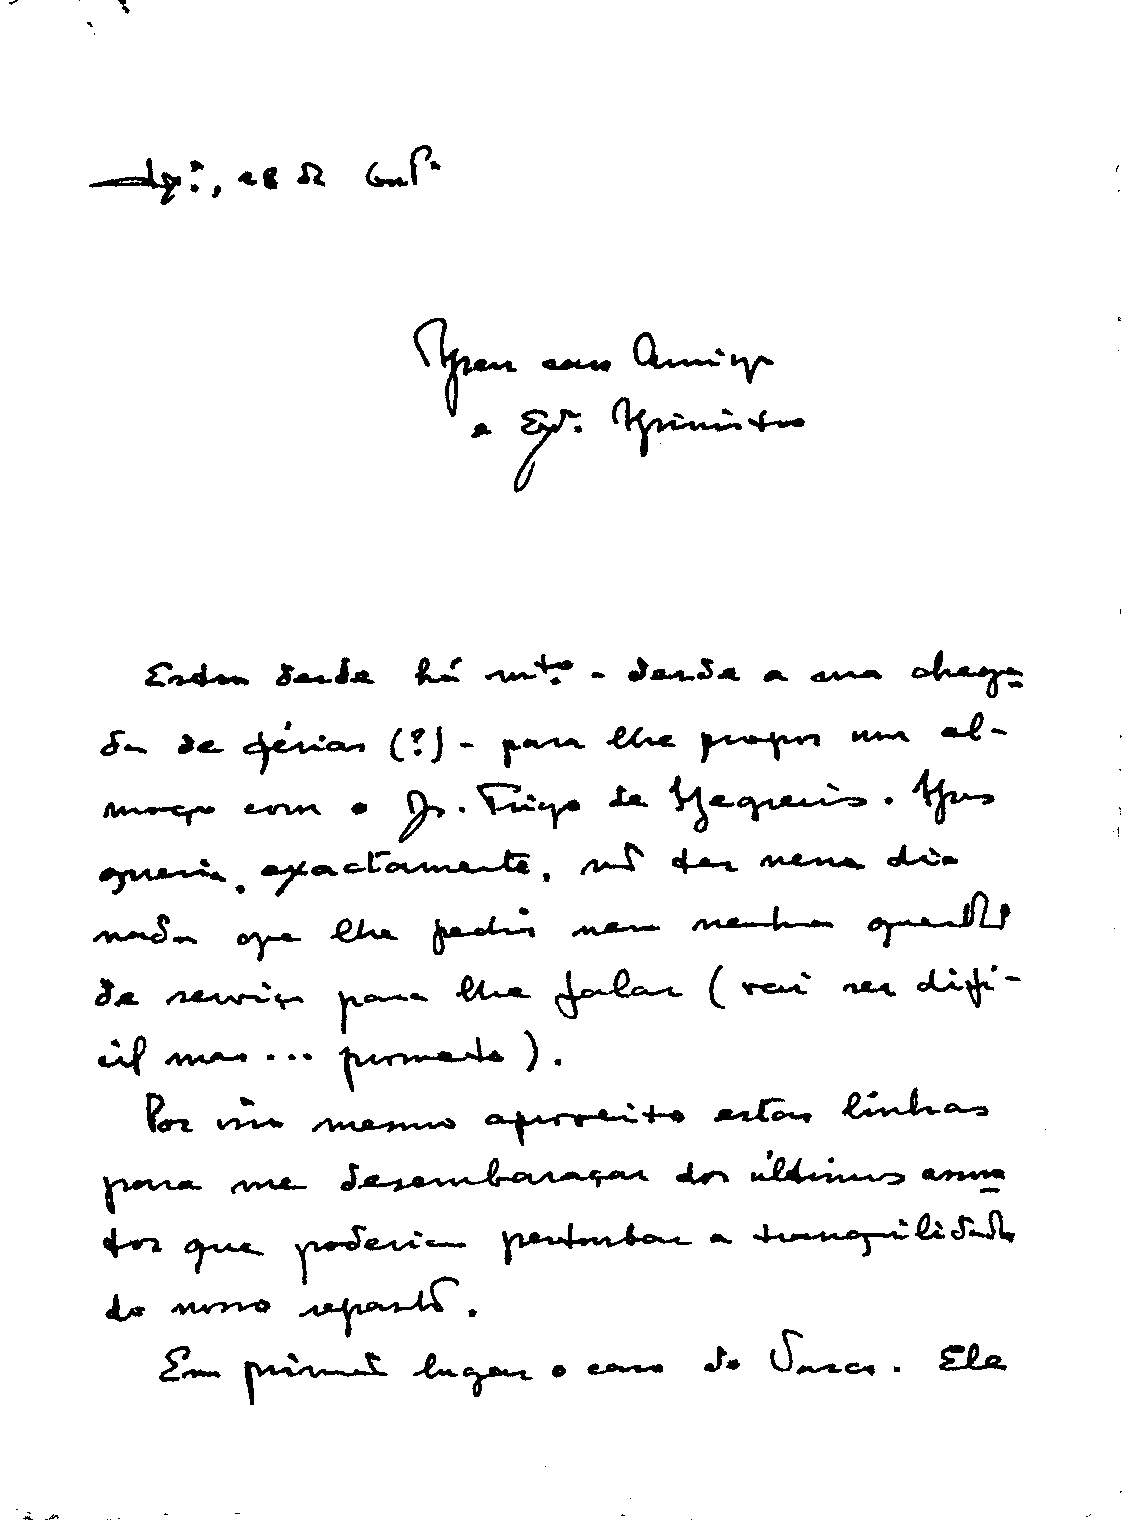 28 de
Meu caro Amigo
e Exº. Ministro
Estou desde há mtº. - desde a sua chega-
da de férias (?) - para lhe propor um al-
moço com o Dr. Trigo de Negreiros. Mas
queria, exactamente, nõ ter nesse dia
nada que lhe pedir nem nenhuma questão
de serviço para lhe falar (vai ser difí-
cil mas ... prometo).
Por isso mesmo aproveito estas linhas
para me desembaraçar dos últimos assun-
tos que poderiam perturbar a tranquilidade
do nosso repasto.
Em primeiro lugar o caso do Vasco. Ele